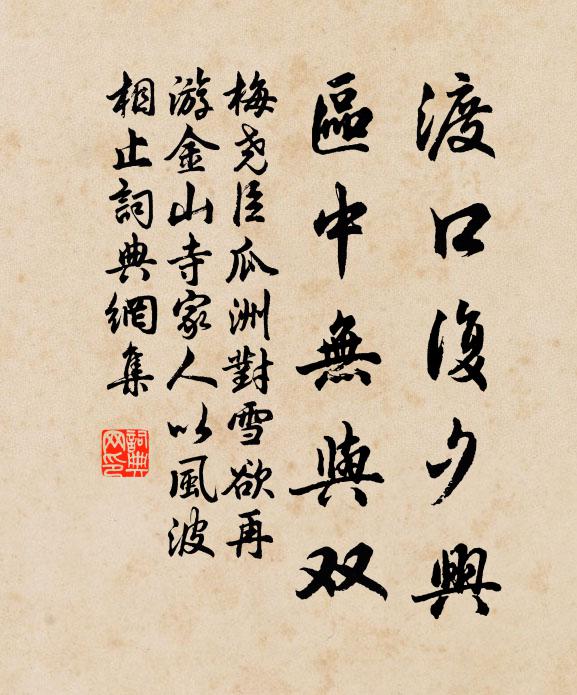 渡口復夕興
區中無與双
梅堯臣瓜洲對雪欲再
游金山寺家人以風波
相止詞典網集
詞典
网印